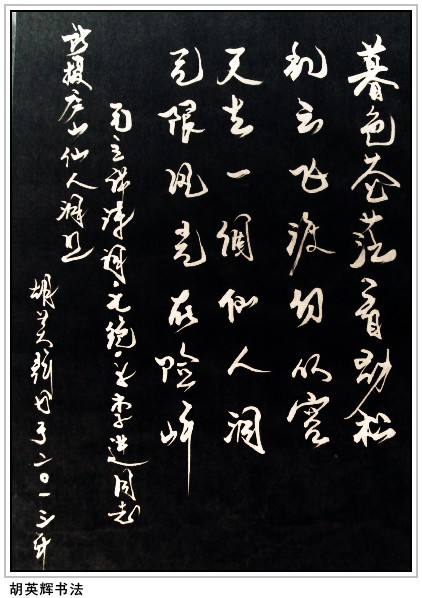 暮色苍茫看劲松
乱云飞渡仍从容
天生一個仙人洞
无限风光在险峰
毛主席诗词·七绝·为李进同志
所摄庐山仙人洞照
胡英辉书于二〇一三年
胡英辉书法